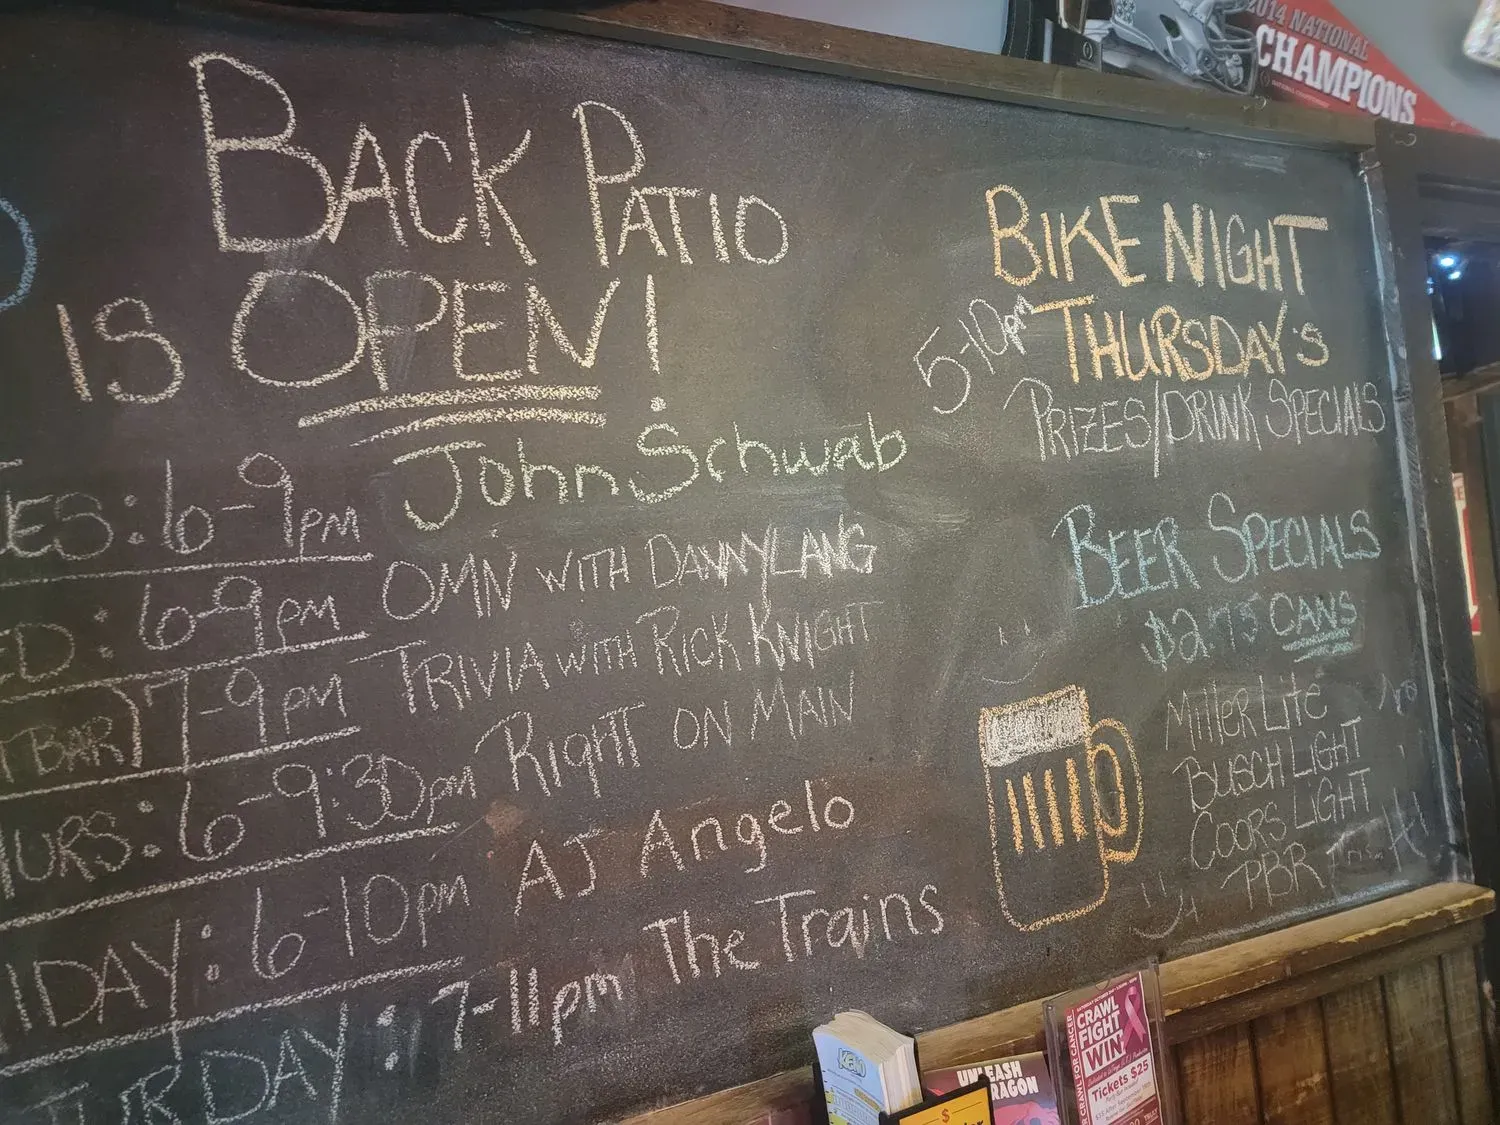 BACK PATIO
IS OPEN!
ES: 6-9PM John Schwab
ED: 6-9PM OMN WITH DANNY LANG
T BAR) 7-9PM TRIVIA WITH RICK KNIGHT
HURS: 6-9:30pm RIGHT ON MAIN
IDAY: 6-10pm AJ Angelo
URDAY: 7-11pm The Trains
BIKE NIGHT
5-10pm THURSDAY'S
PRIZES/DRINK SPECIALS
BEER SPECIALS
$2.75 CANS
Miller Lite
BUSCH LIGHT
COORS LIGHT
PBR
2014 NATIONAL
CHAMPIONS
KENO
UNLEASH
DRAGON
$
CRAWL FOR CANCER
CRAWL
FIGHT
WIN
Tickets $25